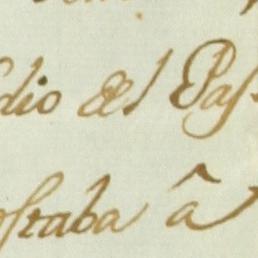 dio del Pas
ostaba â